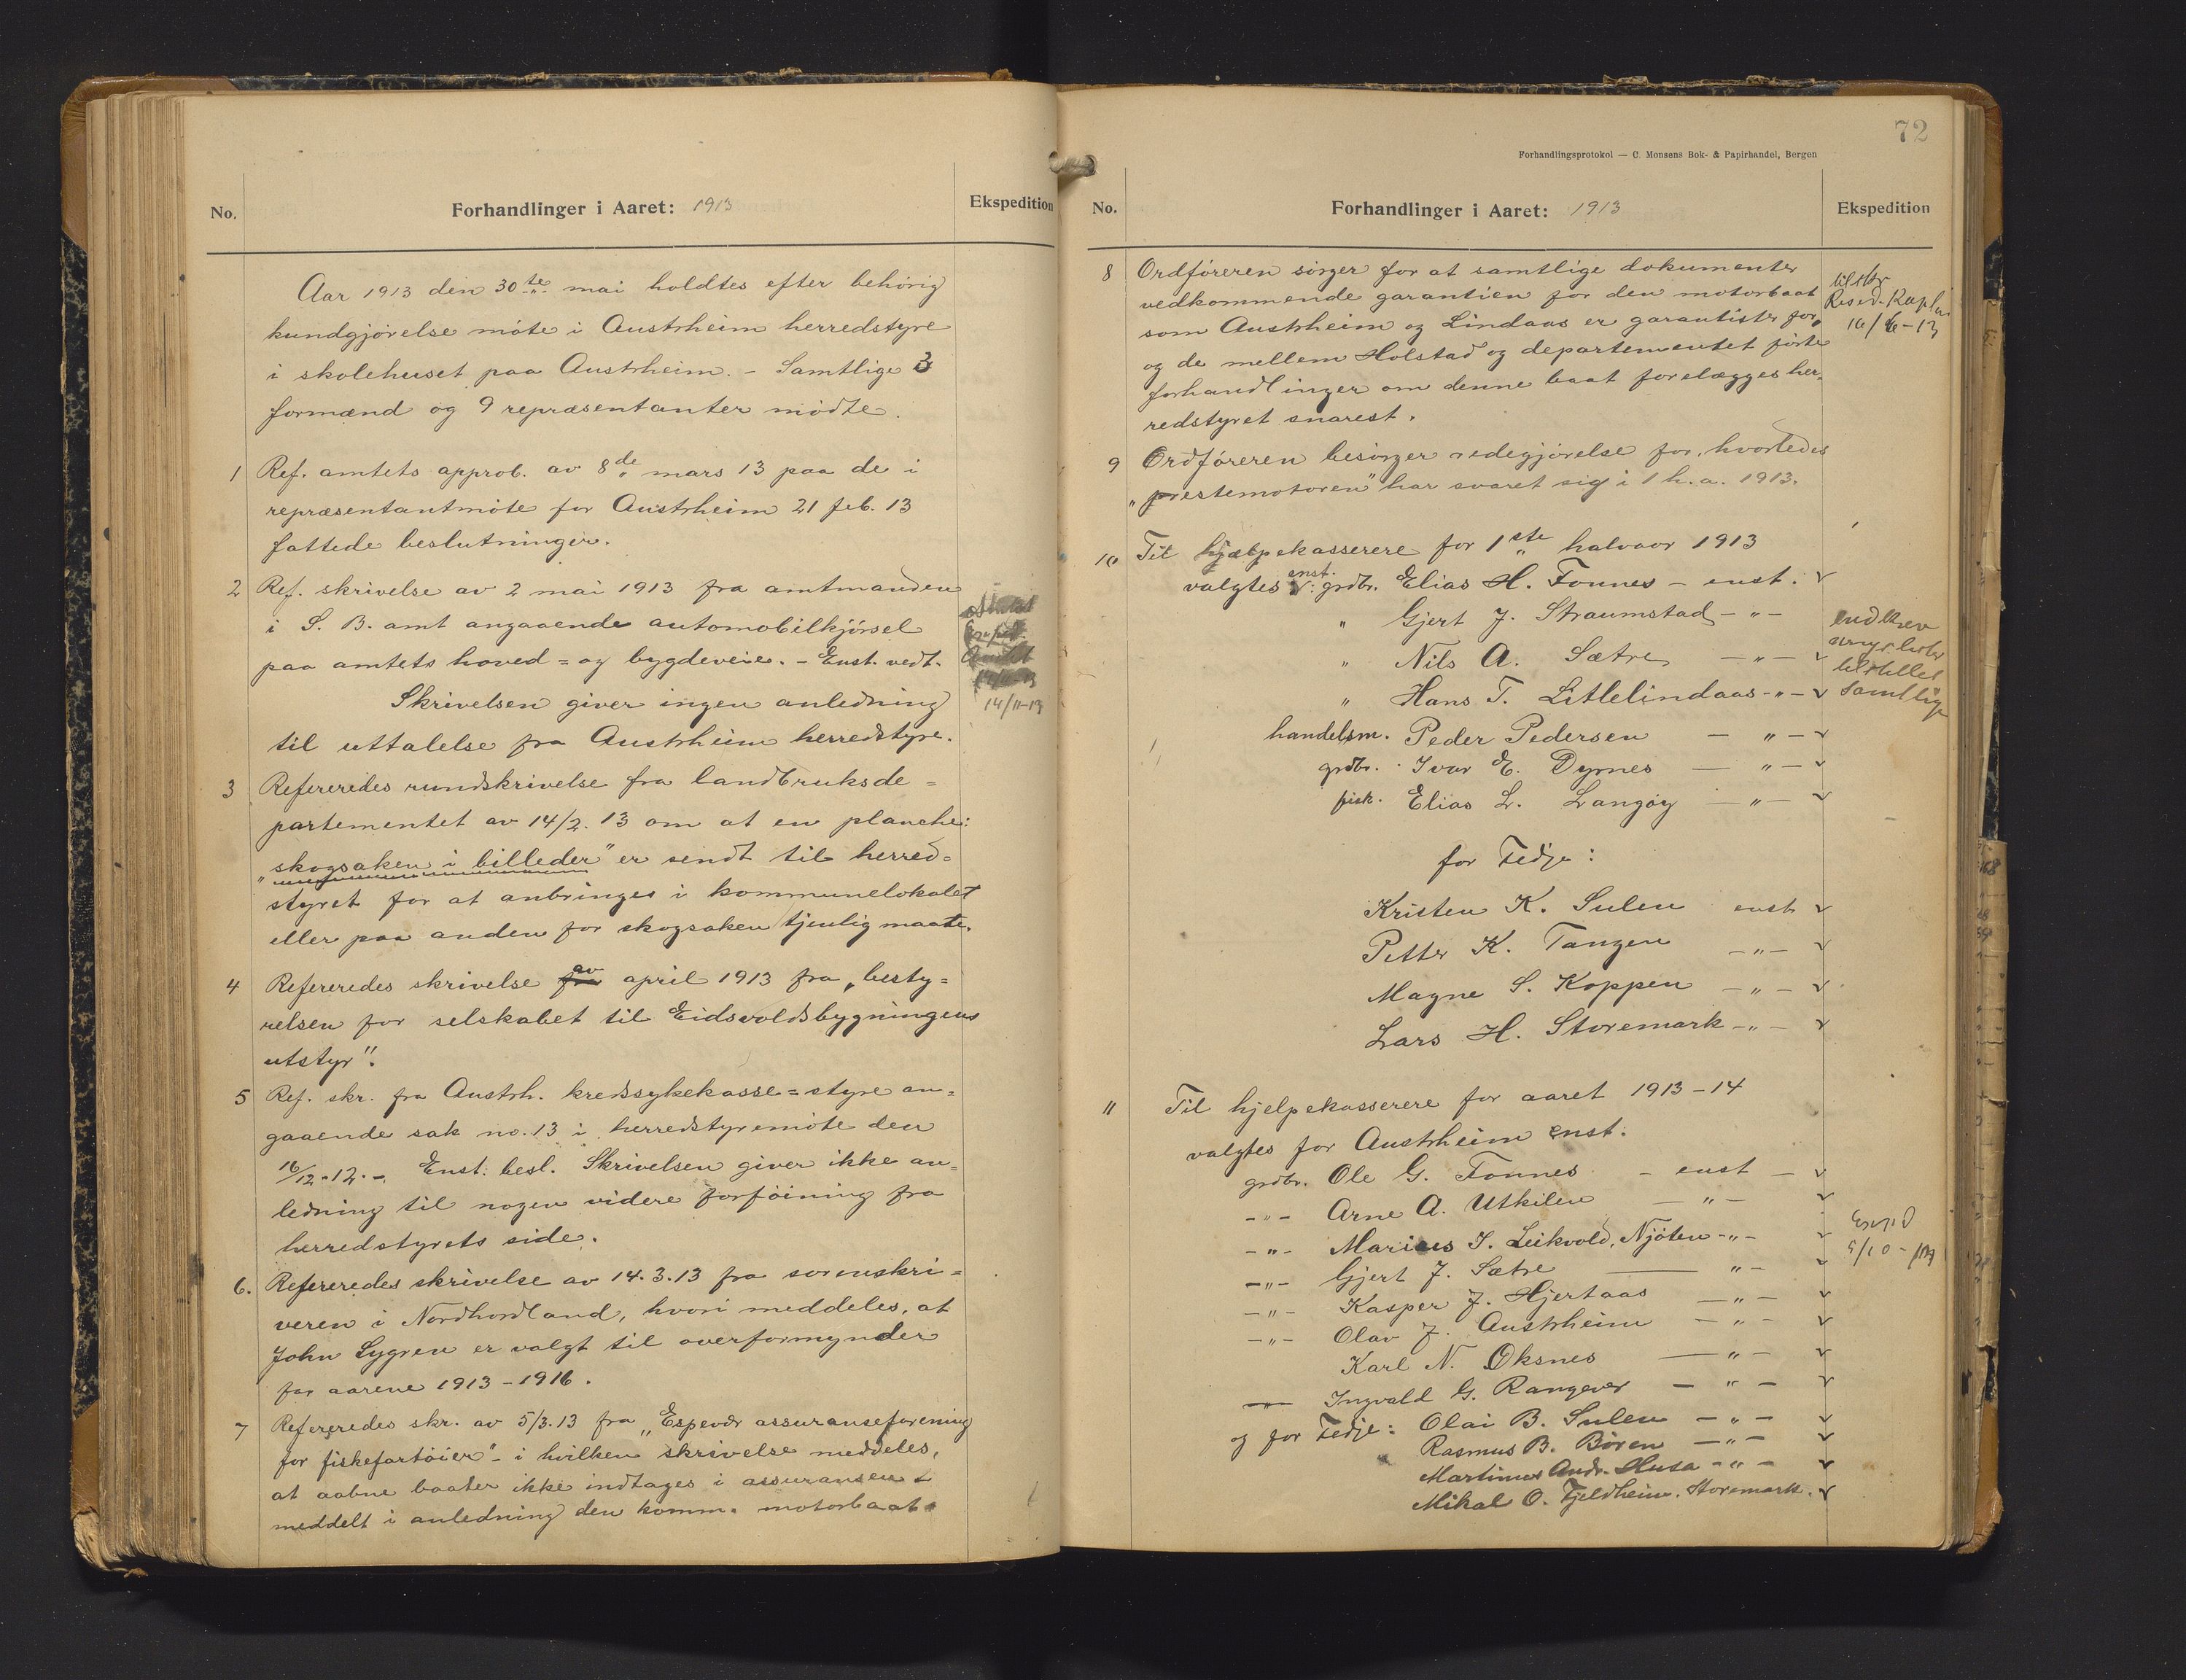 No.
Forhandlinger i Aaret: 1913
Ekspedition
Aar 1913 den 30te mai holdtes efter behørig
kundgjørelse møte i Austrheim herredstyre
i skolehuset paa Austrheim. - Samtlige 3
formænd og 9 repræsentanter mødte.
1 Ref. amtets approb. av 8de mars 13 paa de i
repræsentantmøte for Austrheim 21 feb. 13
fattede beslutninger.
2 Ref. skrivelse av 2 mai 1913 fra amtmanden
i S. B. amt angaaende automobilkjørsel
paa amtets hoved= og bygdeveie. - Enst. vedt.
Skrivelsen giver ingen anledning
til uttalelse fra Austrheim herredstyre.
14/11-13
3 Refereredes rundskrivelse fra landbruksde=
partementet av 14/2. 13 om at en planche:
"skogsaken i billeder" er sendt til herred=
styret for at anbringes i kommunelokalet
eller paa anden for skogsaken tjenlig maate.
4 Refereredes skrivelse av april 1913 fra "besty=
relsen for selskabet til Eidsvoldsbygningens
utstyr".
5 Ref. skr. fra Austrh. kredssykekasse=styre an=
gaaende sak no. 13 i herredstyremøte den
16/12-12. - Enst. besl. Skrivelsen giver ikke an=
ledning til nogen videre forføining fra
herredstyrets side.
6. Refereredes skrivelse av 14.3.13 fra sorenskri=
veren i Nordhordland, hvori meddeles, at
John Lygren er valgt til overformynder
for aarene 1913-1916.
7 Refereredes skr. av 5/3.13 fra "Espevær assuranseforening
for fiskefartøier" - i hvilken skrivelse meddeles,
at aabne baater ikke indtages i assuransen
meddelt i anledning den komm. motorbaat.
72
Forhandlingsprotokol — C. Monsens Bok- & Papirhandel, Bergen
No.
Forhandlinger i Aaret: 1913
Ekspedition
8 Ordføreren sørger for at samtlige dokumenter
vedkommende garantien for den motorbaat
som Austrheim og Lindaas er garantister for,
og de mellem Holstad og departementet førte
forhandlinger om denne baat forelægges her=
redstyret snarest.
16/6-13
9 Ordføreren besørger redegjørelse for, hvorledes
"prestemotoren" har svaret sig i 1 h.a. 1913.
10 Til hjælpekasserere for 1ste halvaar 1913
valgtes enst. : grdbr. Elias H. Fonnes - enst. v
" Gjert J. Straumstad - " -
" Nils A. Sætre - " - v
" Hans T. Litlelindaas - " - v
samtlige
handelsm. Peder Pedersen - " - v
grdbr. Ivar E. Dyrnes - " - v
fisk. Elias L. Langøy - " - v
for Fedje:
Kristen K. Sulen enst v
Petter K. Tangen - " - v
Magne S. Koppen - " - v
Lars H. Storemark - " - v
11 Til hjelpekasserere for aaret 1913-14
valgtes for Austrheim enst.
grdbr. Ole G. Fonnes - enst - v
- " - Arne A. Utkilen - " - v
- " - Marius J. Leikvold, Njøten - " - v
- " - Gjert J. Sætre - " - v
- " - Kasper J. Hjertaas - " - v
- " - Olav J. Austrheim - " - v
Karl N. Øksnes - " - v
- " - Ingvald G. Rangever - " - v
og for Fedje: Olai B. Sulen - " - v
Rasmus B. Børen - " - v
Martinus Andr. Husa - " - v
Mikal O. Fjeldheim. Storemark. v